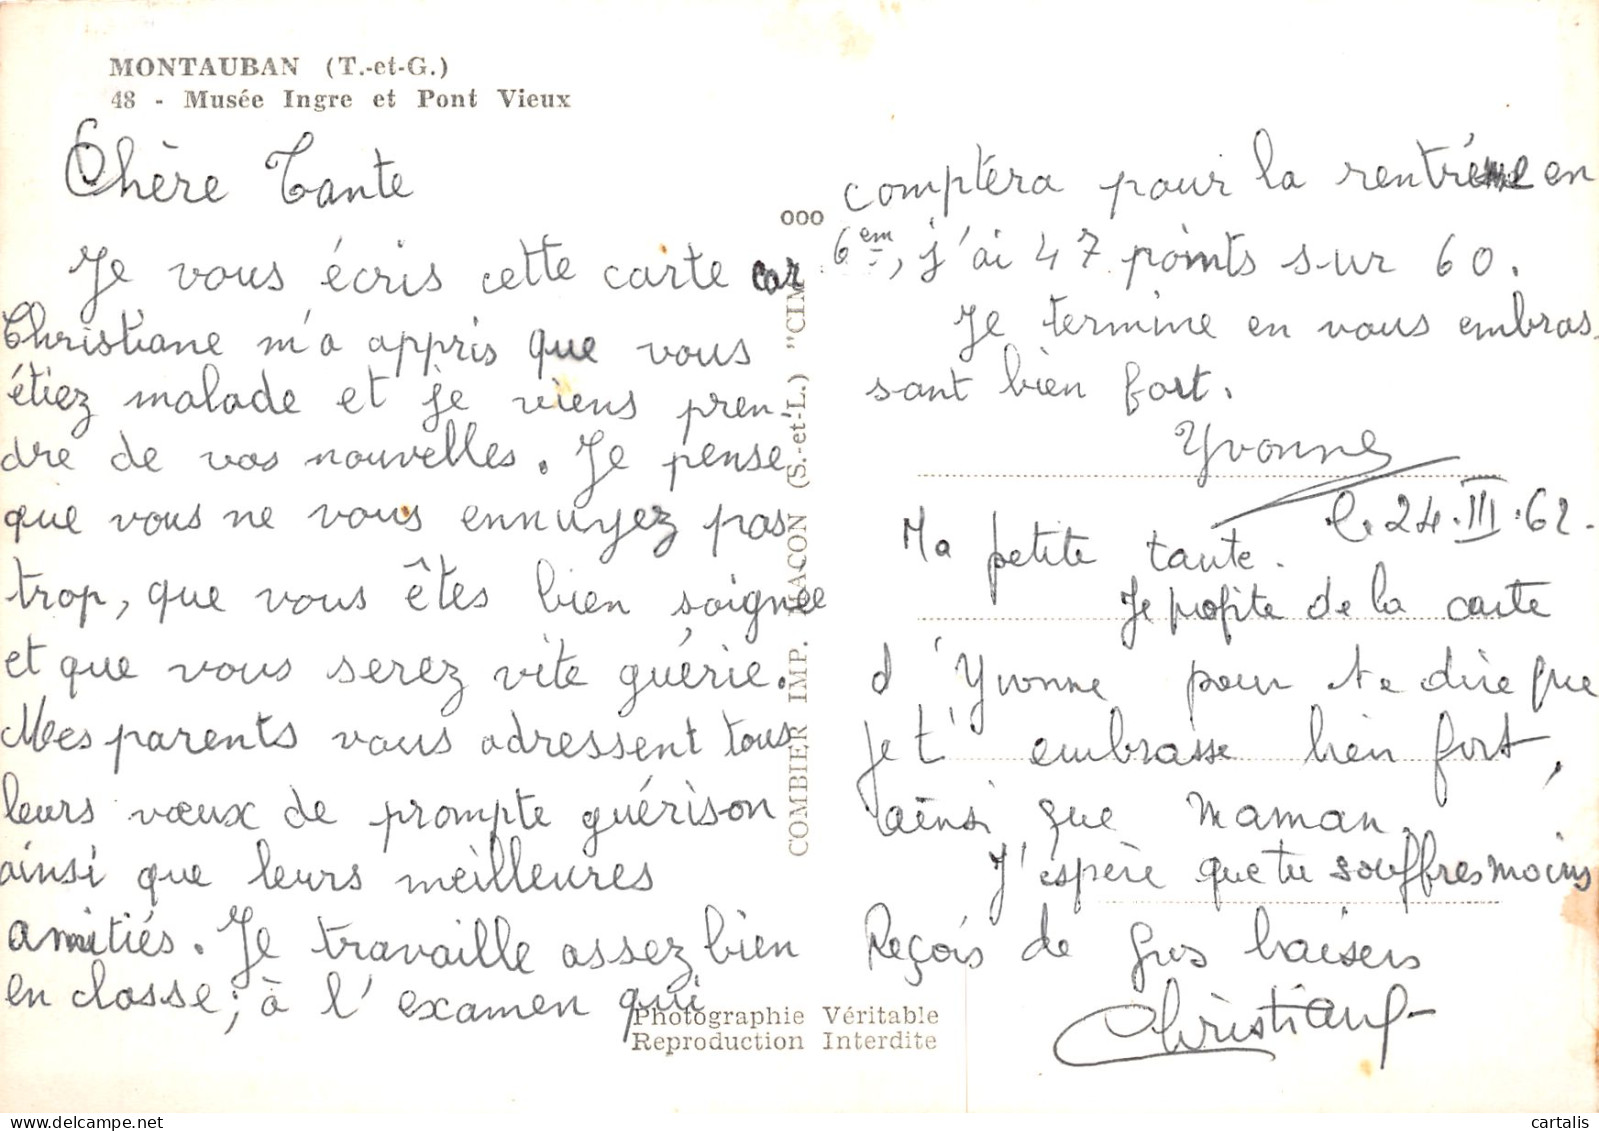 MONTAUBAN (T.-et-G.)
48 - Musée Ingre et Pont Vieux
Chère Tante
Je vous écris cette carte car
Christiane m'a appris que vous
étiez malade et je viens pren-
dre de vos nouvelles. Je pense
que vous ne vous ennuyez pas
trop, que vous êtes bien soignée
et que vous serez vite guérie.
Mes parents vous adressent tous
leurs vœux de prompte guérison
ainsi que leurs meilleures
amitiés. Je travaille assez bien
en classe; à l'examen qui
comptéra pour la rentrée en
6em, j'ai 47 points sur 60.
Je termine en vous embras-
sant bien fort.
Yvonne
le 24.III.62.
Ma petite tante.
Je profite de la carte
d'Yvonne pour te dire que
je t'embrasse bien fort,
ainsi que Maman.
J'espère que tu souffres moins
Reçois de gros baisers
Christiane
000
COMBIER IMP. MACON (S.-et-L.) "CIM"
Photographie Véritable
Reproduction Interdite
cartalis
www.delcampe.net